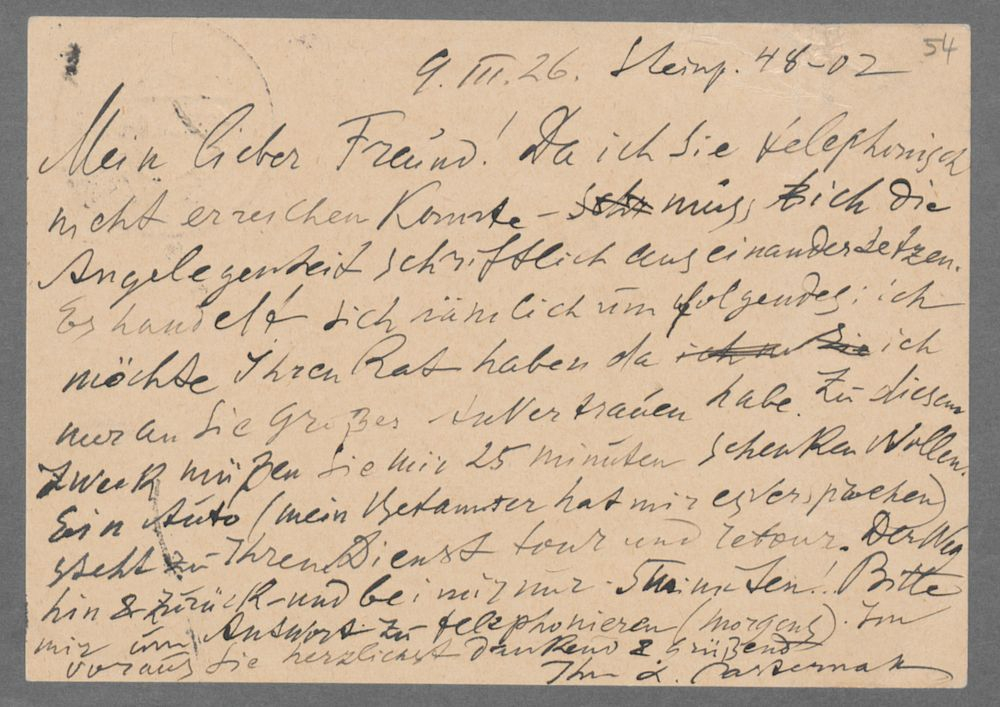 54
9. III. 26. Steinp. 48-02
Mein lieber Freund! Da ich Sie telephonisch
nicht erreichen konnte - muss ich die
Angelegenheit schriftlich auseinandersetzen.
Es handelt sich nämlich um folgendes; ich
möchte Ihren Rat haben da ich
nur an Sie großes Zuvertrauen habe. Zu diesem
Zweck müßen Sie mir 25 minuten schenken wollen.
Ein Auto (mein Bekannter hat mir es versprochen)
steht zu Ihren Dienst tour und retour. Der Weg
hin & zurück - und bei mir nur 5 minuten!! Bitte
mir um Antwort zu telephonieren (morgens). Im
voraus Sie herzlichst dankend & Grüßend
Ihr L. Pasternak